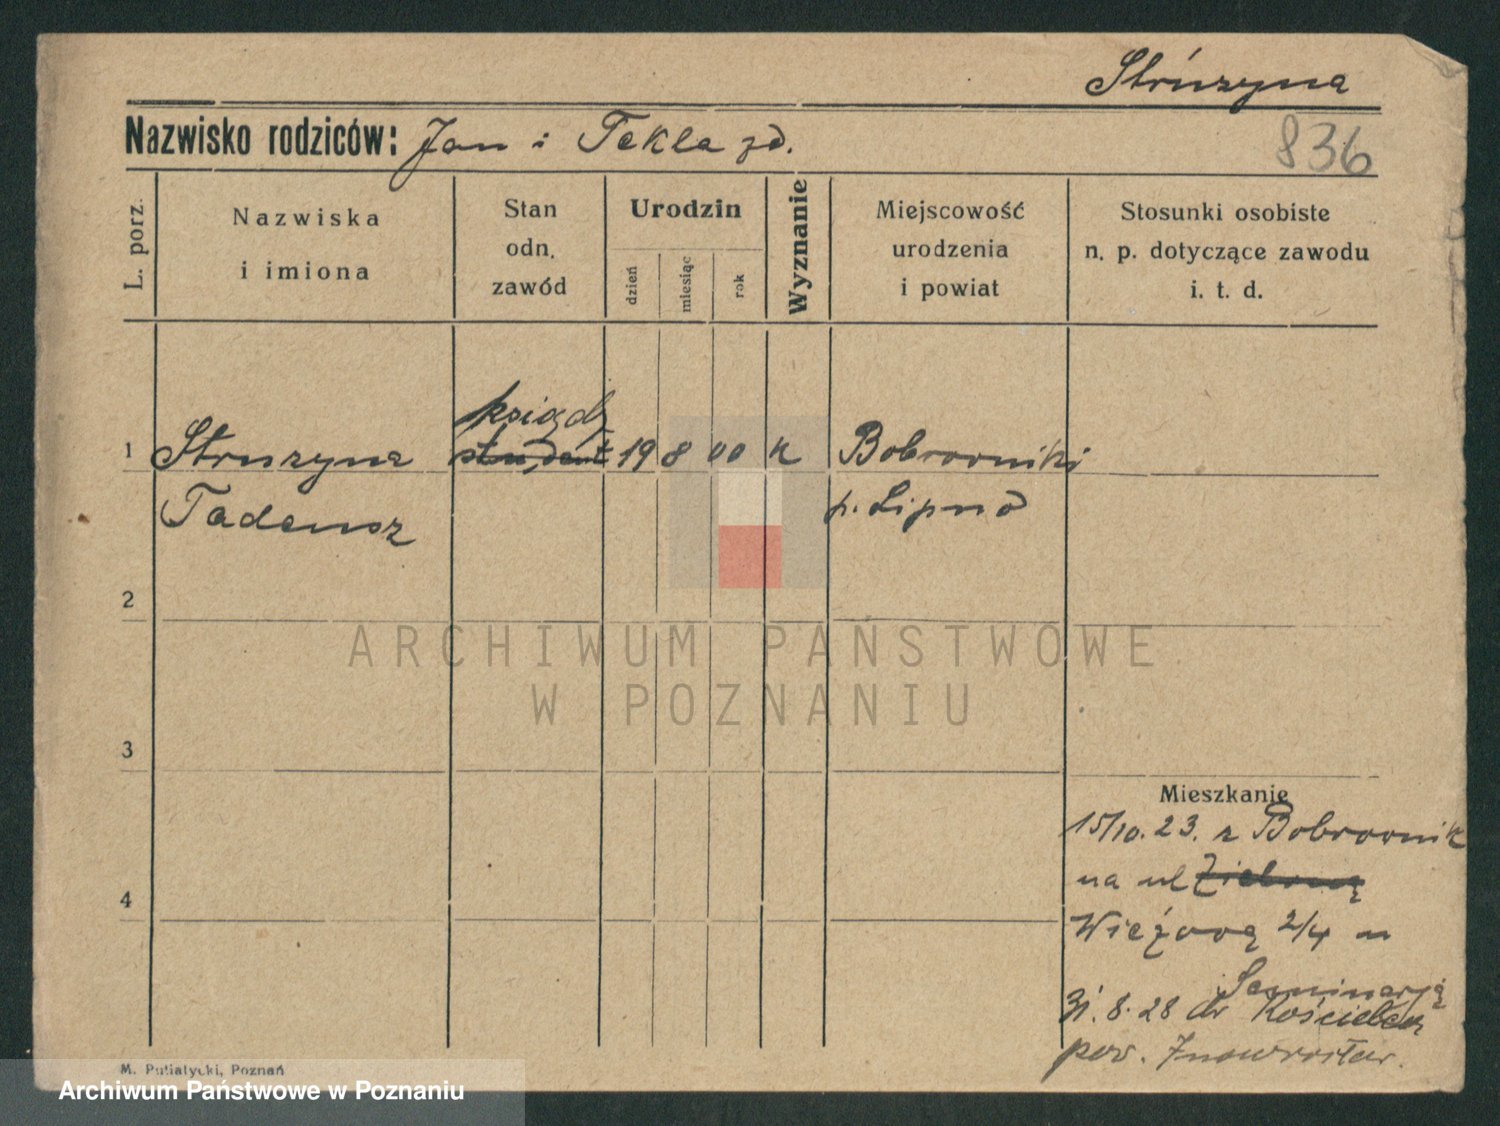 Strużyna
Nazwisko rodziców: Jan i Tekla zd.
836
L. porz.
Nazwiska
i imiona
Stan
odn.
zawód
Urodzin
dzień
miesiąc
rok
Wyznanie
Miejscowość
urodzenia
i powiat
Stosunki osobiste
n. p. dotyczące zawodu
i. t. d.
ksiądz
1 Struzyna student 19 8 00 K Bobrowniki
Tadeusz p. Lipno
2
3
4
Mieszkanie
15/10. 23. z Bobrownik
na ul Zieloną
Wieżową 2/4 u
Seminarją
31. 8. 28 do Kościelca
pow. Inowrocław.
M. Putiatycki, Poznań
ARCHIWUM PAŃSTWOWE
W POZNANIU
Archiwum Państwowe w Poznaniu